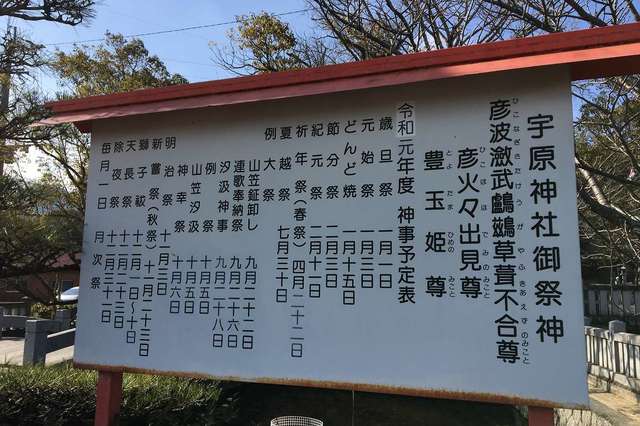 宇原神社御祭神
彦波瀲武鸕鶿草葺不合尊
ひこなぎさたけうがやふきあえずのみこと
彦火々出見尊
ひこほほでみのみこと
豊玉姫尊
とよたまひめのみこと
令和元年度 神事予定表
歳旦祭 一月一日
元始祭 一月三日
どんど焼 一月十五日
節分祭 二月三日
紀元祭 二月十一日
祈年祭(春祭) 四月二十二日
夏越祭 七月三十日
例大祭
山笠鉦卸し 九月二十二日
連歌奉納祭 九月二十六日
汐汲神事 九月二十八日
例祭 十月五日
山笠汐汲 十月五日
神幸祭 十月六日
明治祭 十一月三日
新嘗祭(秋祭) 十一月二十三日
獅子祓 十二月一日~十日
天長祭 十二月二十三日
除夜祭 十二月三十一日
毎月一日 月次祭